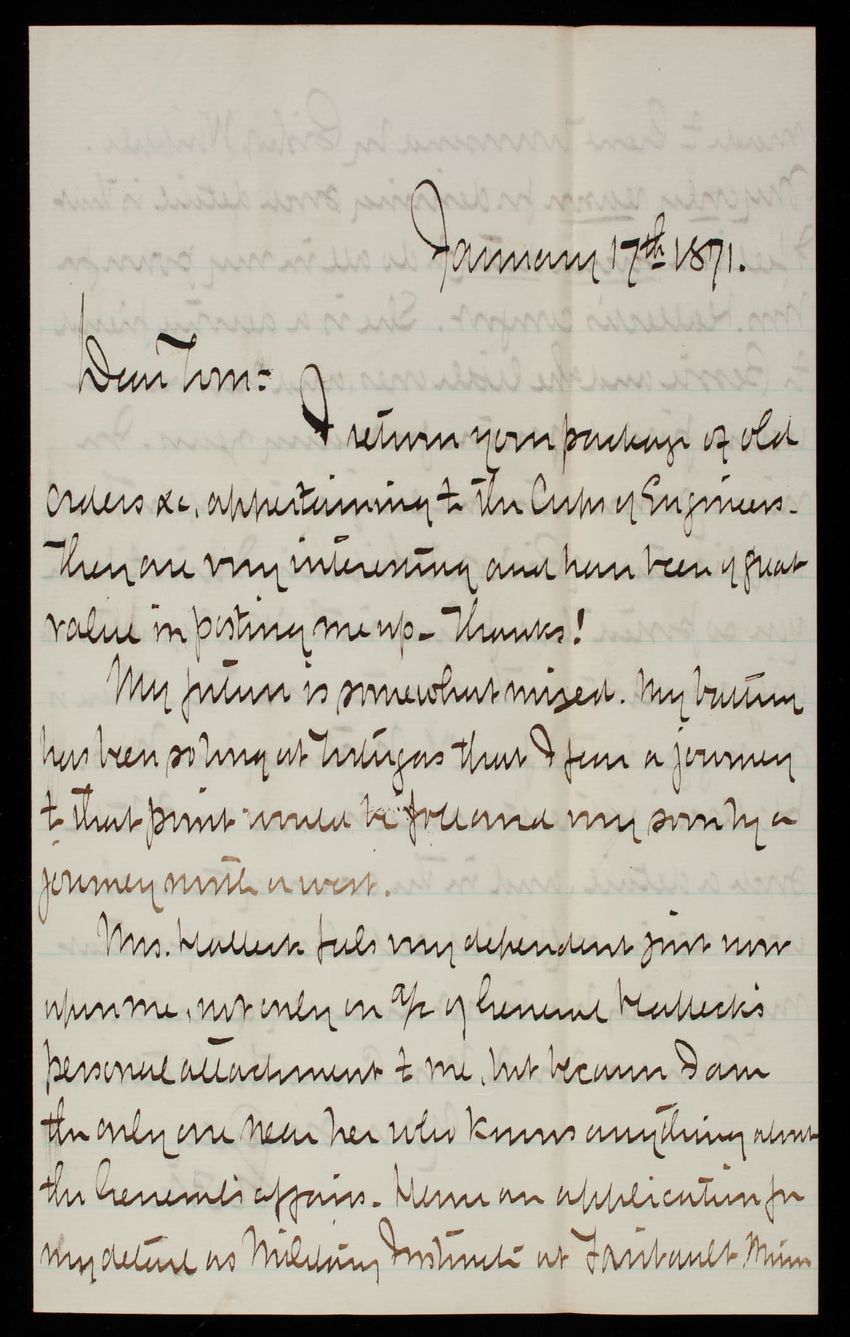 January 17th 1871.
Dear Tom:
I return your package of old
orders &c, appertaining to the Corps of Engineers.
They are very interesting and have been of great
value in posting me up. Thanks!
My future is somewhat mixed. My battery
has been so long at Tortugas that I fear a journey
to that point would be followed very soon by a
journey north or west.
Mrs. Halleck feels very dependent just now
upon me, not only on a/c of General Halleck's
personal attachment to me, but because I am
the only one near her who knows anything about
the General's affairs. Hence an application for
my detail as Military Instructor at Faribault Minn